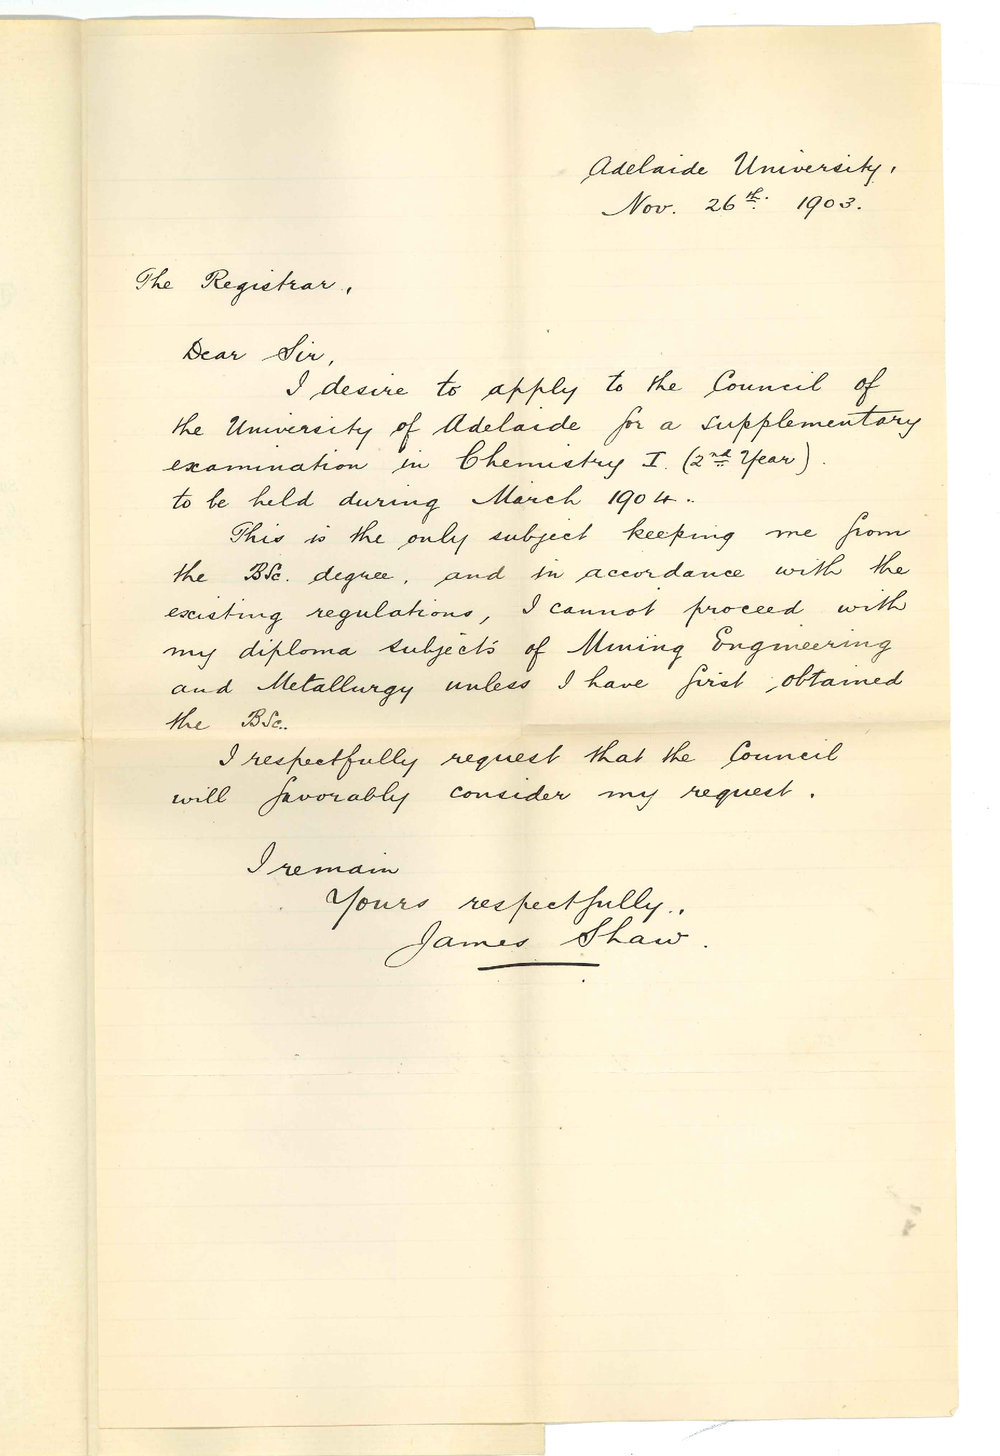 Adelaide University,
Nov. 26th. 1903.
The Registrar,
Dear Sir,
I desire to apply to the Council of
the University of Adelaide for a supplementary
examination in Chemistry I. (2nd Year).
to be held during March 1904.
This is the only subject keeping me from
the BSc. degree, and in accordance with the
existing regulations, I cannot proceed with
my diploma subjects of Mining Engineering
and Metallurgy unless I have first obtained
the BSc..
I respectfully request that the Council
will favorably consider my request.
I remain
Yours respectfully,
James Shaw.